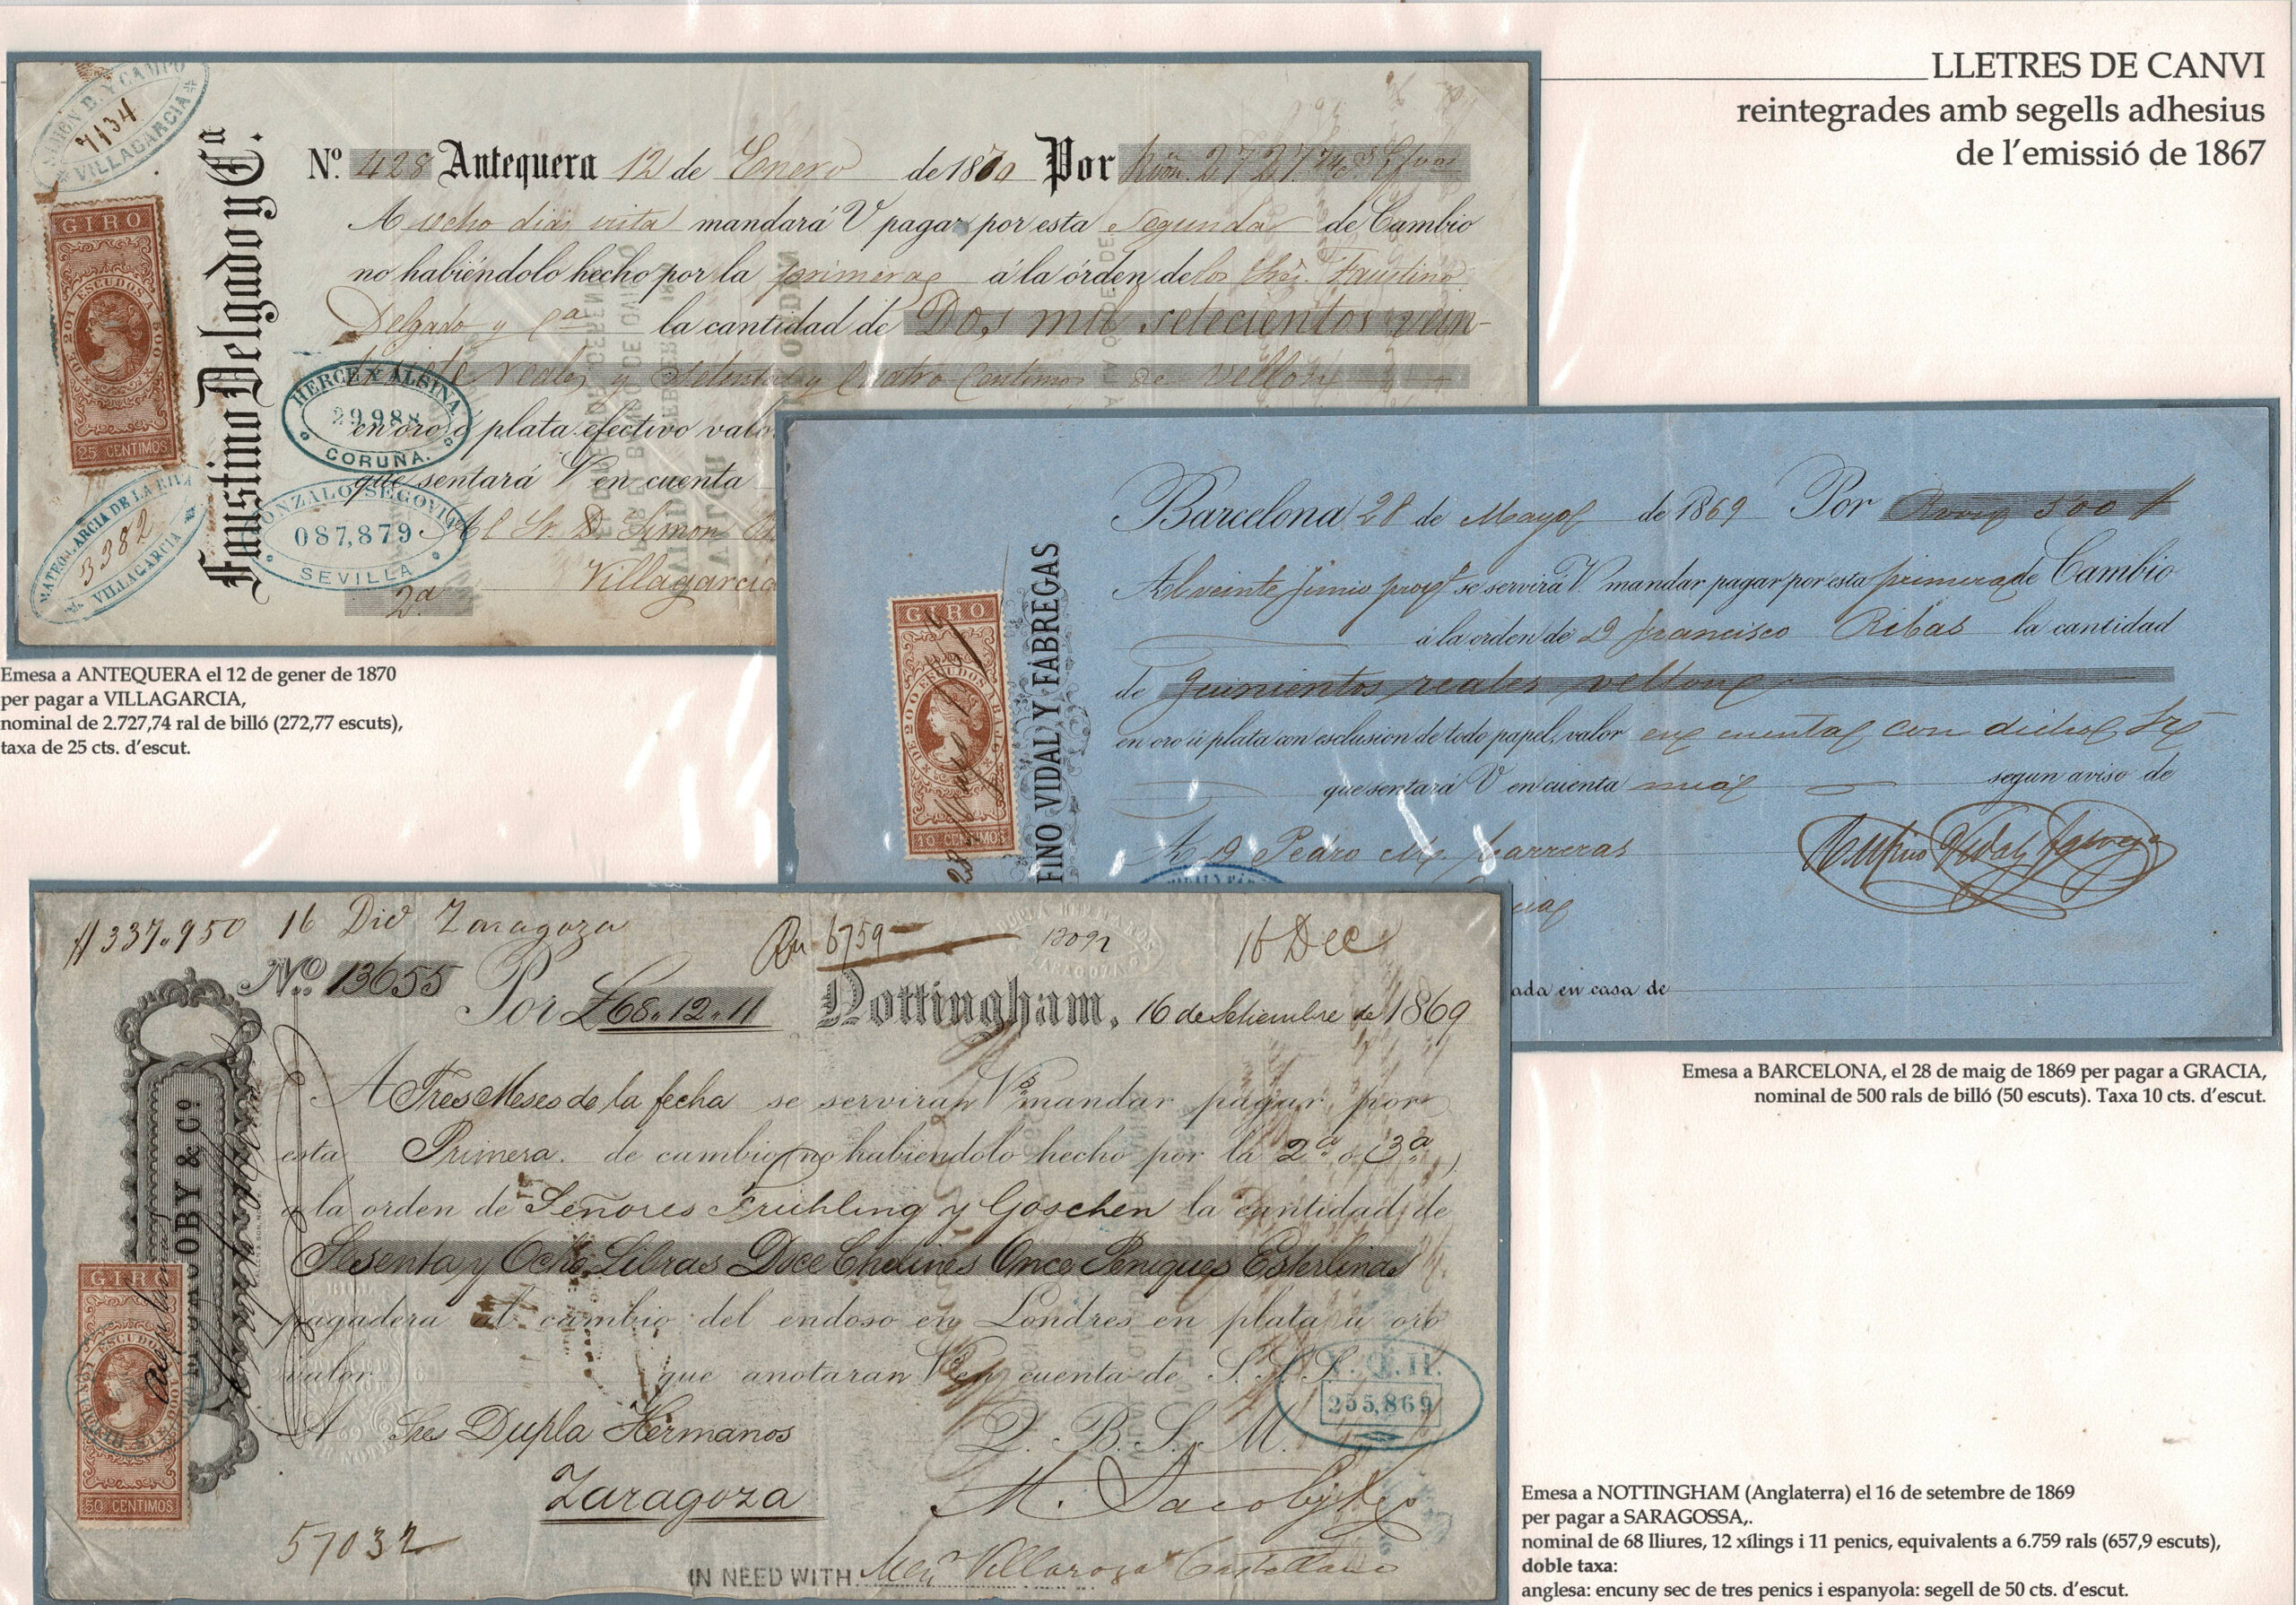 LLETRES DE CANVI
reintegrades amb segells adhesius
de l'emissió de 1867
SIMON B. Y CAMPO
7134
VILLAGARCIA
GIRO
DE 201 ESCUDOS A 500
25 CENTIMOS
Faustino Delgado y Cª.
Nº. 428 Antequera 12 de Enero de 1870 Por Rvon. 2727.74
A ocho dias vista mandará V pagar por esta Segunda de Cambio
no habiéndolo hecho por la primera á la órden de los Sres. Faustino
Delgado y Cª la cantidad de Dos mil setecientos vein-
tisiete reales y setenta y cuatro centimos de vellon
en oro ó plata efectivo valor
que sentará V en cuenta
Al Sr. D. Simon
Villagarcia
2ª
HERCE Y ALSINA
29,988
CORUÑA.
GONZALO SEGOVIA
087,879
SEVILLA
MATEO GARCIA DE LA RIVA
3382
VILLAGARCIA
Emesa a ANTEQUERA el 12 de gener de 1870
per pagar a VILLAGARCIA,
nominal de 2.727,74 ral de billó (272,77 escuts),
taxa de 25 cts. d'escut.
Barcelona 28 de Mayo de 1869 Por Rvon 500
Al veinte Junio prox se servirá V. mandar pagar por esta primera de Cambio
á la orden de D Francisco Ribas la cantidad
de Quinientos reales vellon
en oro ú plata con esclusion de todo papel, valor en cuenta con dicho Sr
que sentará V en cuenta mia segun aviso de
A D Pedro M. Carreras
ada en casa de
FINO VIDAL Y FÁBREGAS
GIRO
10 CENTIMOS
28 Mayo
Emesa a BARCELONA, el 28 de maig de 1869 per pagar a GRACIA,
nominal de 500 rals de billó (50 escuts). Taxa 10 cts. d'escut.
337.950 16 Dic Zaragoza
Rn 6759
16 Dec
Nº 13655 Por £68.12.11 Nottingham, 16 de Setiembre de 1869
A Tres Meses de la fecha se serviran Vs mandar pagar por
esta Primera de cambio (no habiendolo hecho por la 2ª ó 3ª)
a la orden de Señores Fruhling y Goschen la cantidad de
Sesenta y Ocho Libras Doce Chelines Once Peniques Esterlinas
pagadera al cambio del endoso en Londres en plata ú oro
valor que anotaran Vs en cuenta de S. S. S.
Q. B. S. M.
A Sres Dupla Hermanos
Zaragoza
M. Jacoby & Co
255,869
57032
IN NEED WITH
JACOBY & Cº
GIRO
50 CENTIMOS
Emesa a NOTTINGHAM (Anglaterra) el 16 de setembre de 1869
per pagar a SARAGOSSA,.
nominal de 68 lliures, 12 xílings i 11 penics, equivalents a 6.759 rals (657,9 escuts),
doble taxa:
anglesa: encuny sec de tres penics i espanyola: segell de 50 cts. d'escut.